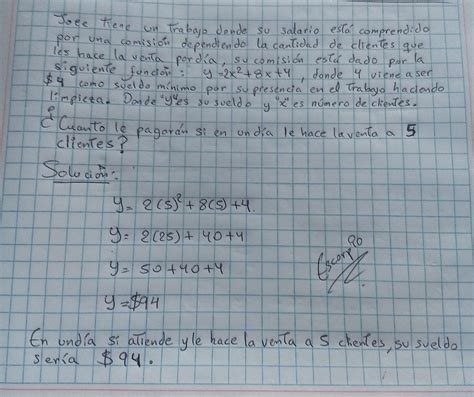 Jose tiene un trabajo donde su salario está comprendido
por una comisión dependiendo la cantidad de clientes que
les hace la venta por día, su comisión está dado por la
siguiente función: y=2x²+8x+4, donde 4 viene a ser
$4 como sueldo mínimo por su presencia en el trabajo haciendo
limpieza. Donde "y" es su sueldo y "x" es número de clientes.
¿Cuanto le pagarán si en un día le hace la venta a 5
clientes?
Solución:
y= 2(5)²+8(5)+4.
y= 2(25)+ 40+4
y= 50+40+4
y=$94
En un día si atiende y le hace la venta a 5 clientes, su sueldo
sería $94.